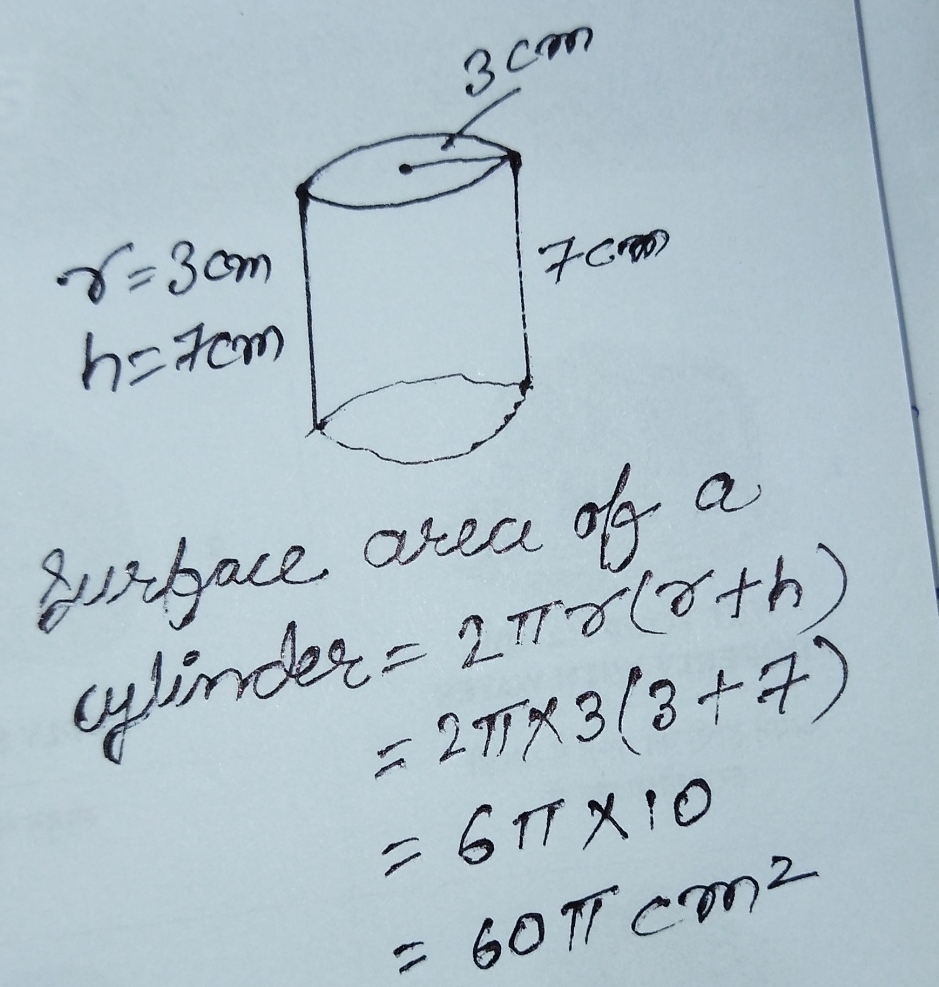 3cm
r=3cm
7cm
h=7cm
Surface area of a
cylinder = 2πr(r+h)
= 2π×3(3+7)
= 6π×10
= 60π cm²